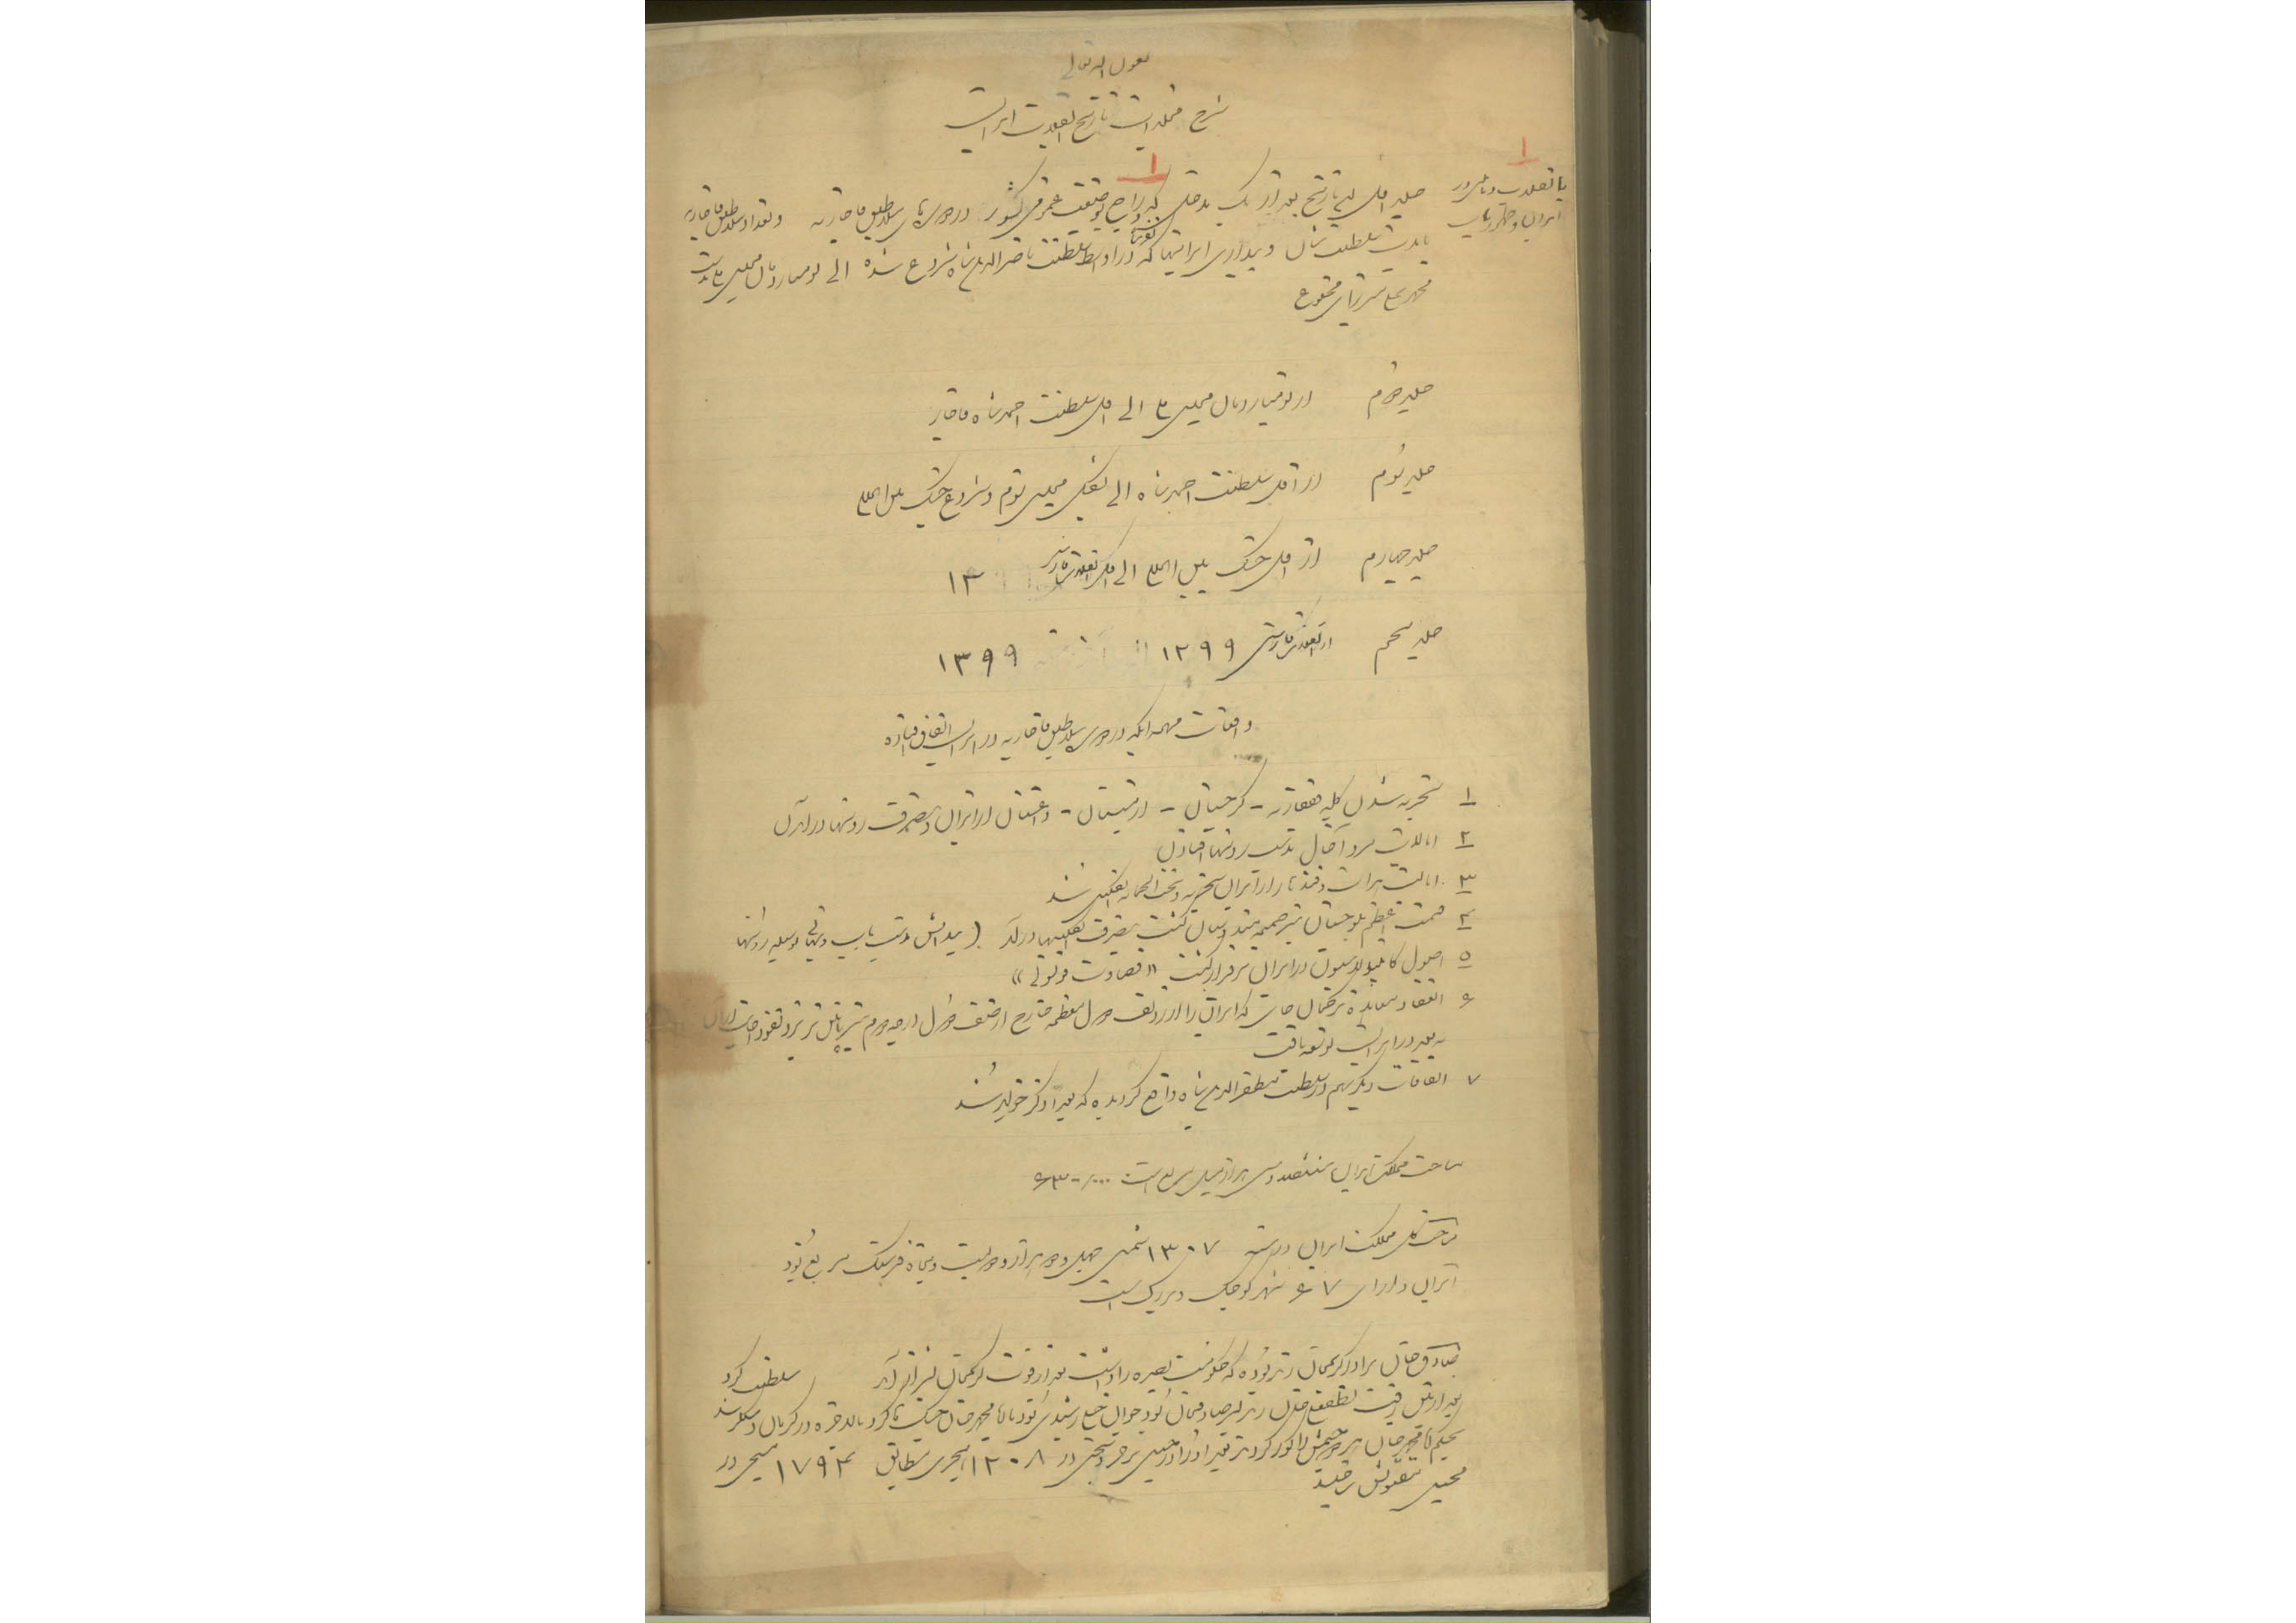 بعون الله تعالی
شرح مجلدات تاریخ انقلاب ایران
۱
یا انقلاب و تاثیر در
ایران و
۱
جلد اول این تاریخ بعد از یک مدخل که راجع بوضعیت عمومی کشور در دوره‌های سلاطین قاجاریه و تعداد سلاطین قاجاریه
با مدت سلطنت شان و بیداری ایرانیها که در اواسط سلطنت ناصرالدین شاه شروع شده الی بومباردمان مجلس ملی بدست
محمد علی میرزای مخلوع
جلد دوم از بومباردمان مجلس ملی الی اول سلطنت احمد شاه قاجار
جلد سوم از اول سلطنت احمد شاه الی تشکیل مجلس سوم و شروع جنگ بین المللی
جلد چهارم از اول جنگ بین المللی الی اول ۱۳
جلد پنجم از ۱۲۹۹ ۱۳۹۹
واقعات مهمه ایکه در دوره سلاطین قاجاریه در ایران اتفاق افتاده
۱ تجزیه شدن کلیه قفقازیه - گرجستان - ارمنستان - داغستان از ایران و بتصرف روسها در آمدن
۲ ایالات مرو آخال بدست روسها افتادن
۳ ایالت هرات و قندهار از ایران تجزیه و تحت الحمایه انگلیس شد
۴ قسمت اعظم بلوچستان نیز ضمیمه هندوستان گشت بتصرف انگلیسها درآمد (پیدایش مذهب باب و بهائی بوسیله روسها
۵ اصول کاپیتولاسیون در ایران برقرار گشت «قضاوت قونسولی»
۶ انعقاد معاهده ترکمان چای که ایران را از ردیف دول معظمه خارج از صف دول درجه دوم نیز پائین تر برد نفوذ اجانب از آن
به بعد در ایران توسعه یافت
۷ اتفاقات دیگر هم در سلطنت مظفرالدین شاه واقع گردیده که بعداً ذکر خواهد شد
مساحت مملکت ایران ششصد و سی هزار میل مربع است ۶۳۰/۰۰۰
مساحت کل مملکت ایران در سنه ۱۳۰۷ شمسی چهل و دو هزار و دویست و پنجاه فرسنگ مربع بود
ایران دارای ۶۷ شهر کوچک و بزرگ است
صادق خان برادر کریمخان زند بوده که حکومت بصره را داشت بعد از فوت کریمخان بشیراز آمد سلطنت کرد
بعد از قتل لطفعلی خان زند جوان شجاع رشیدی بود با آقا محمد خان جنگ ها کرد بالاخره در کرمان دستگیر شد
بحکم آقا محمد خان هر دو چشمش را کور کردند بعد او را در ۱۲۰۸ هجری مطابق ۱۷۹۴ مسیحی در
محبس بقتل رسید